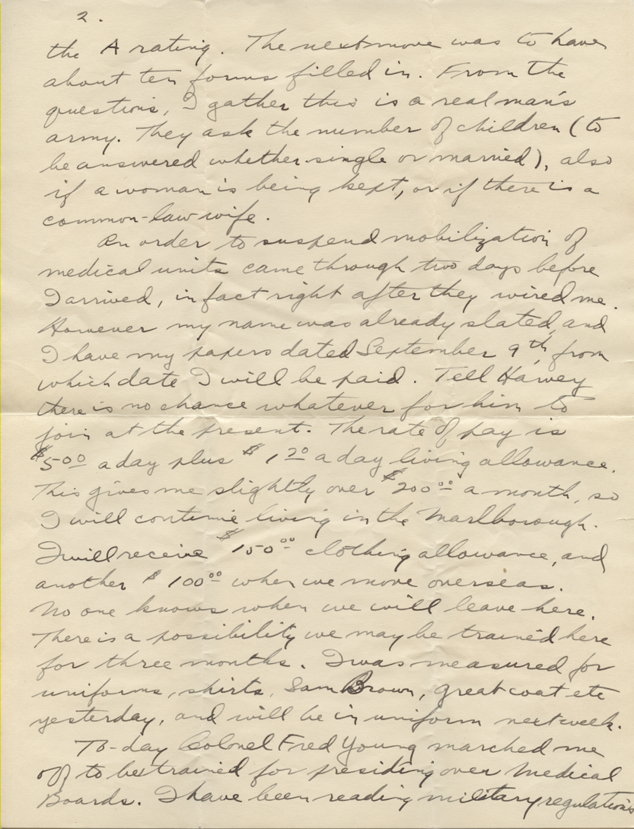 2.
the A rating. The next move was to have
about ten forms filled in. From the
questions, I gather this is a real man's
army. They ask the number of children (to
be answered whether single or married), also
if a woman is being kept, or if there is a
common-law wife.
An order to suspend mobilization of
medical units came through two days before
I arrived, in fact right after they wired me.
However my name was already slated, and
I have my papers dated September 9th, from
which date I will be paid. Tell Harvey
there is no chance whatever for him to
join at the present. The rate of pay is
$5.00 a day plus $1.20 a day living allowance.
This gives me slightly over $200.00 a month, so
I will continue living in the Marlborough.
I will receive $150.00 clothing allowance, and
another $100.00 when we move overseas.
No one knows when we will leave here.
There is a possibility we may be trained here
for three months. I was measured for
uniforms, shirts, Sam Brown, great coat etc
yesterday, and will be in uniform next week.
To-day Colonel Fred Young marched me
off to be trained for presiding over Medical
Boards. I have been reading military regulations